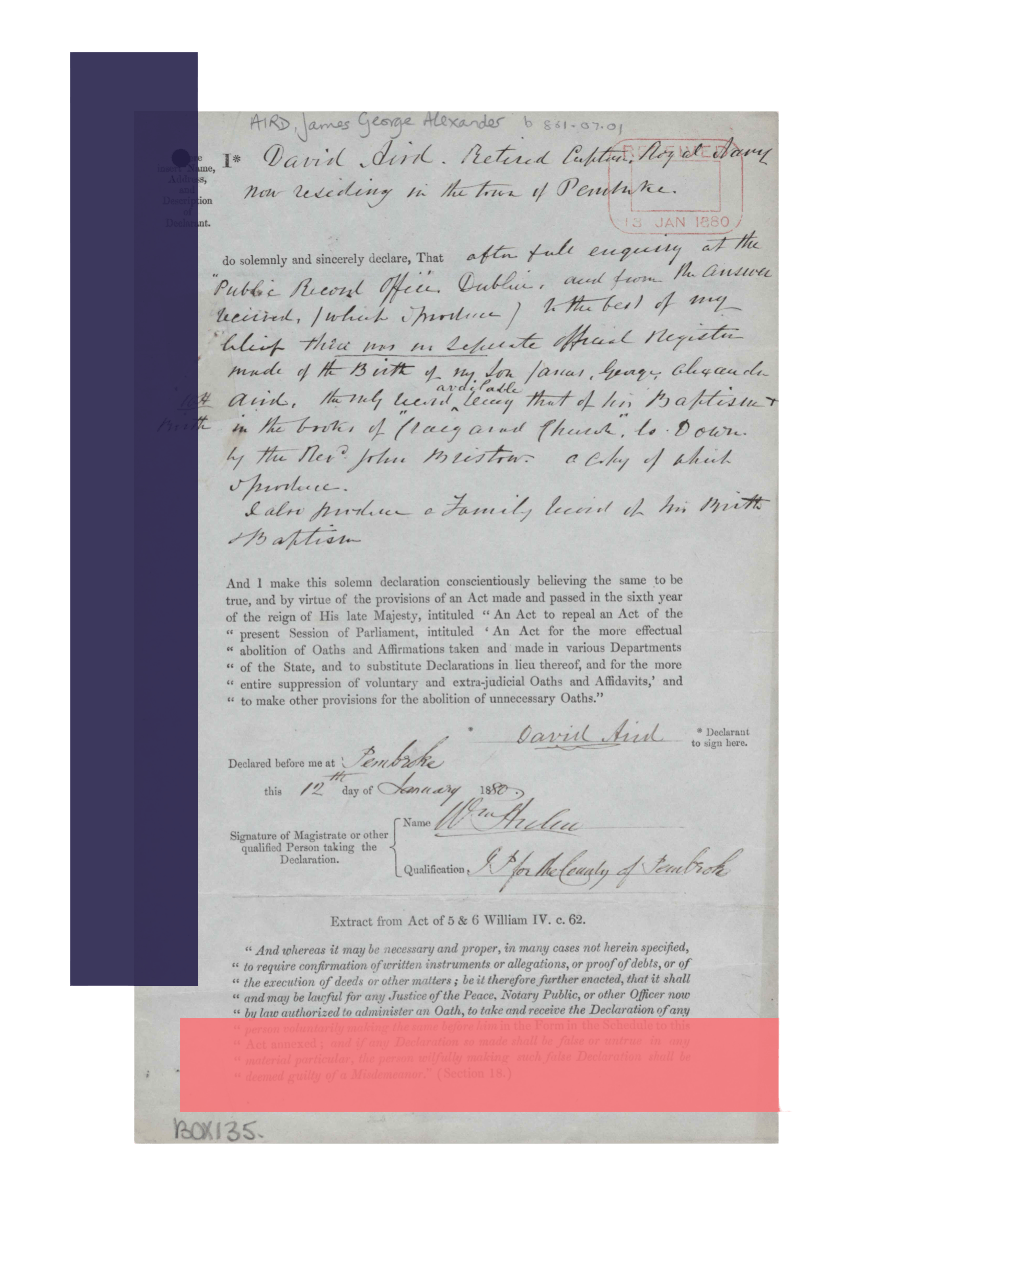 AIRD, James George Alexander b 851-07-01
RECEIVED
13 JAN 1880
Name,
Address,
and
Description
of
Declarant.
I* David Aird. Retired Captain, Royal Navy
now residing in the town of Pembroke.
do solemnly and sincerely declare, That after full enquiry at the
"Public Record Office" Dublin, and from the answer
received, (which I produce) to the best of my
belief there was no separate official Register
made of the Birth of my Son James, George, Alexander
Aird, the only record available being that of his Baptism +
Birth
in the books of "Craigavad Church", Co. Down
by the Revd. John Bristow. a copy of which
I produce.
I also produce a Family record of his Birth
& Baptism
And I make this solemn declaration conscientiously believing the same to be
true, and by virtue of the provisions of an Act made and passed in the sixth year
of the reign of His late Majesty, intituled “ An Act to repeal an Act of the
“ present Session of Parliament, intituled ‘ An Act for the more effectual
“ abolition of Oaths and Affirmations taken and made in various Departments
“ of the State, and to substitute Declarations in lieu thereof, and for the more
“ entire suppression of voluntary and extra-judicial Oaths and Affidavits,’ and
“ to make other provisions for the abolition of unnecessary Oaths.”
* David Aird
* Declarant
to sign here.
Declared before me at Pembroke
this 12th day of January 1880.
Signature of Magistrate or other
qualified Person taking the
Declaration.
Name Wm Hulm
Qualification, J P for the County of Pembroke
Extract from Act of 5 & 6 William IV. c. 62.
“ And whereas it may be necessary and proper, in many cases not herein specified,
“ to require confirmation of written instruments or allegations, or proof of debts, or of
“ the execution of deeds or other matters ; be it therefore further enacted, that it shall
“ and may be lawful for any Justice of the Peace, Notary Public, or other Officer now
“ by law authorized to administer an Oath, to take and receive the Declaration of any
“ person voluntarily making the same before him in the Form in the Schedule to this
“ Act annexed ; and if any Declaration so made shall be false or untrue in any
“ material particular, the person wilfully making such false Declaration shall be
“ deemed guilty of a Misdemeanor.” (Section 18.)
BOX 135.